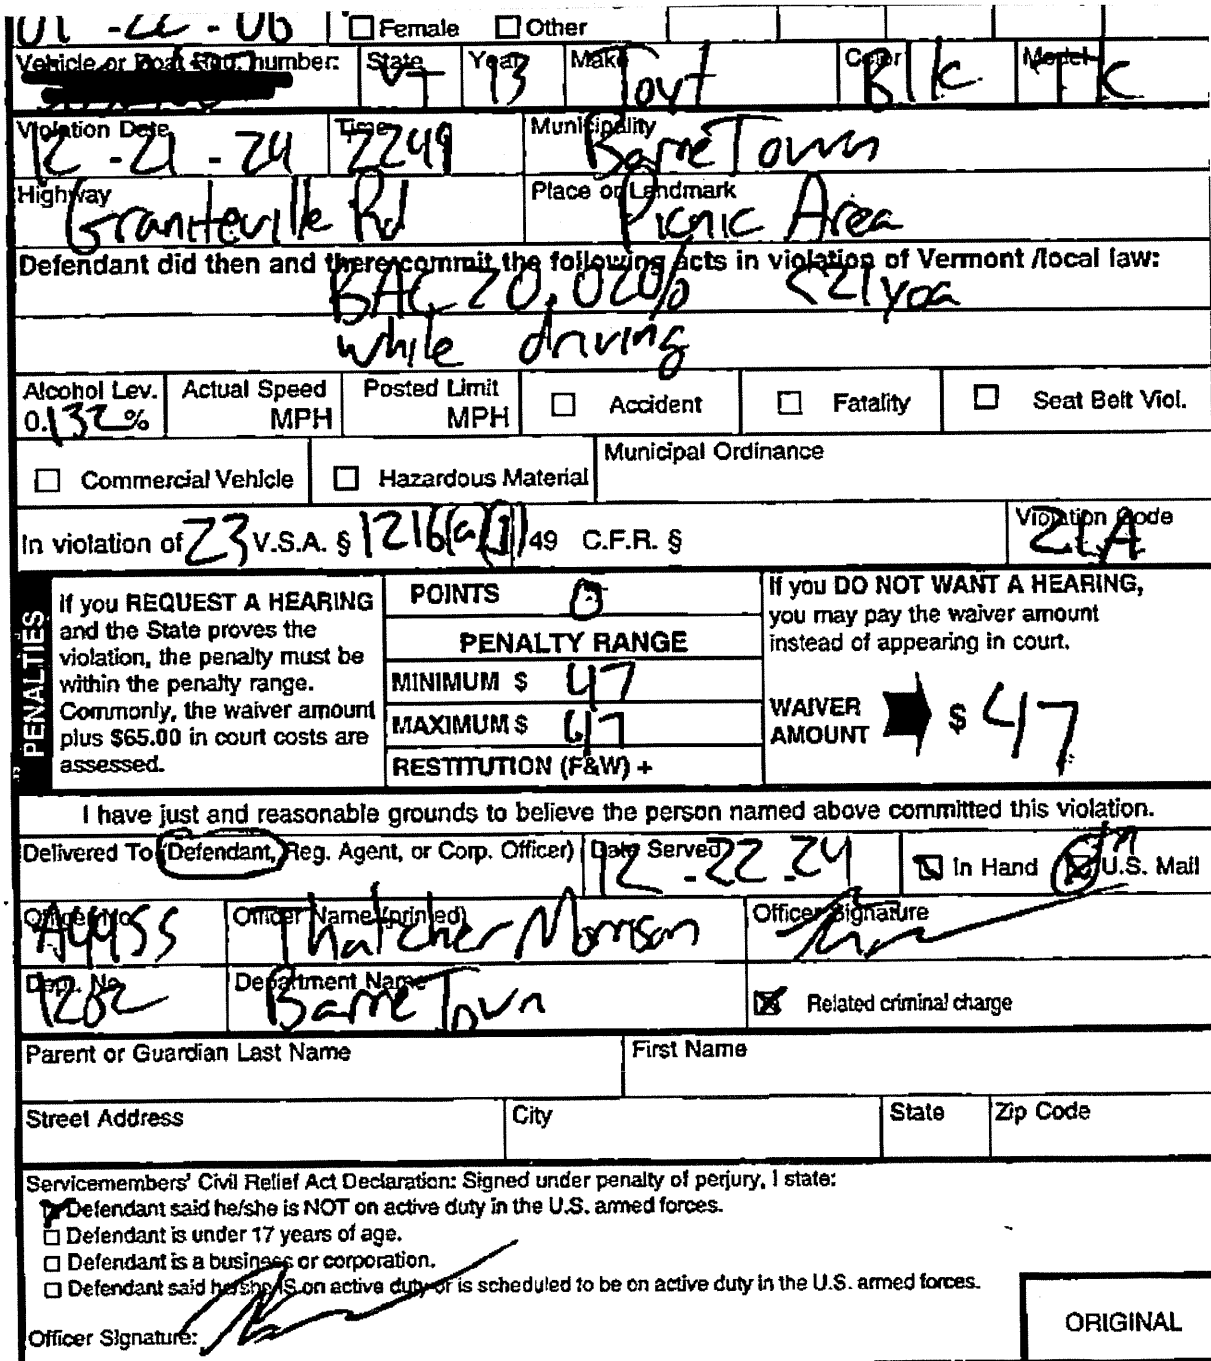 01 -22 - 06 Female Other
Vehicle or Boat Reg. number: State VT Year 13 Make Toyt Color Blk Model TK
Violation Date 12 -21 - 24 Time 2249 Municipality Barre Town
Highway Graniteville Rd Place or Landmark Picnic Area
Defendant did then and there commit the following acts in violation of Vermont /local law:
BAC ≥0.02% <21 yoa
while driving
Alcohol Lev. 0.132 % Actual Speed MPH Posted Limit MPH Accident Fatality Seat Belt Viol.
Commercial Vehicle Hazardous Material Municipal Ordinance
In violation of 23 V.S.A. § 1216(a)(1) 49 C.F.R. § Violation Code 21A
PENALTIES
If you REQUEST A HEARING
and the State proves the
violation, the penalty must be
within the penalty range.
Commonly, the waiver amount
plus $65.00 in court costs are
assessed.
POINTS 0
PENALTY RANGE
MINIMUM $ 47
MAXIMUM $ 47
RESTITUTION (F&W) +
If you DO NOT WANT A HEARING,
you may pay the waiver amount
instead of appearing in court.
WAIVER AMOUNT $ 47
I have just and reasonable grounds to believe the person named above committed this violation.
Delivered To (Defendant, Reg. Agent, or Corp. Officer) Date Served 12 -22 -24 In Hand U.S. Mail
Officer No. Officer Name (printed) Thatcher Morrison Officer Signature
Dept. No. 1202 Department Name Barre Town Related criminal charge
Parent or Guardian Last Name First Name
Street Address City State Zip Code
Servicemembers' Civil Relief Act Declaration: Signed under penalty of perjury, I state:
Defendant said he/she is NOT on active duty in the U.S. armed forces.
Defendant is under 17 years of age.
Defendant is a business or corporation.
Defendant said he/she IS on active duty or is scheduled to be on active duty in the U.S. armed forces.
Officer Signature:
ORIGINAL